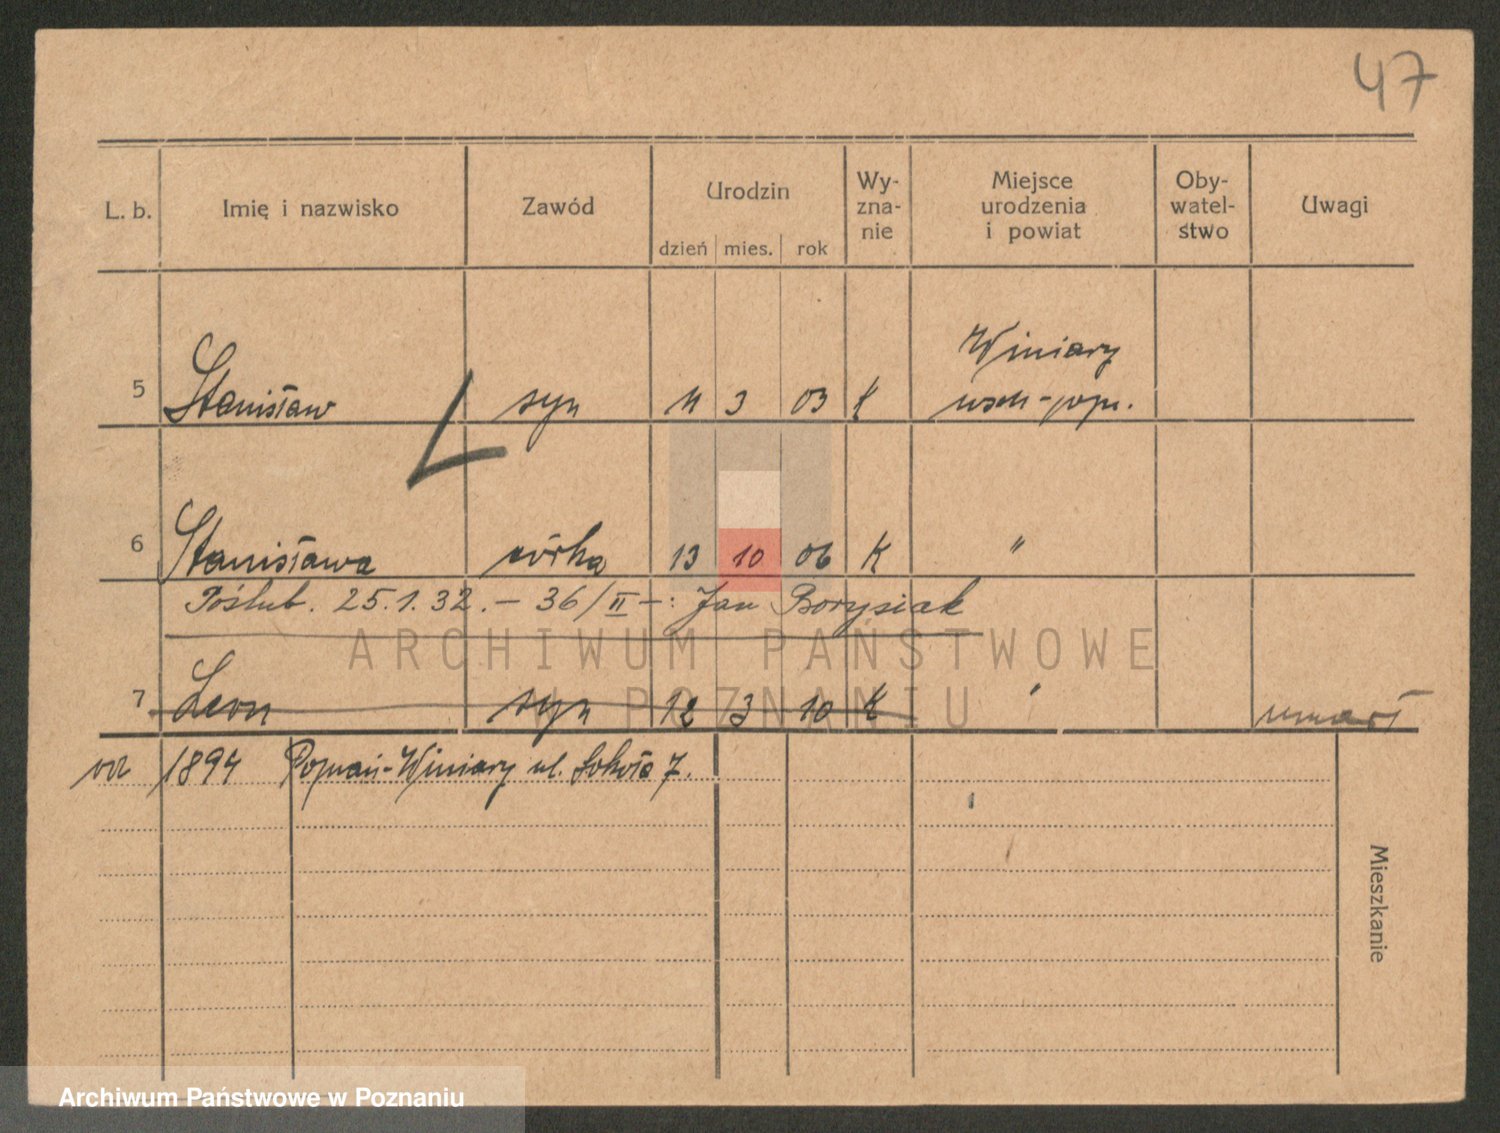 47
L. b. Imię i nazwisko Zawód Urodzin Wy- Miejsce Oby- Uwagi
zna- urodzenia watel-
nie i powiat stwo
dzień mies. rok
Winiary
5 Stanisław syn 11 3 03 k
6 Stanisława córka 13 10 06 K "
Poślub. 25.1.32. - 36/II -: Jan Borysiak
ARCHIWUM PAŃSTWOWE
W POZNANIU
7 Leon syn 12 3 10 K " umarł
od 1894 Poznań-Winiary ul. Sokoła 7.
Mieszkanie
Archiwum Państwowe w Poznaniu